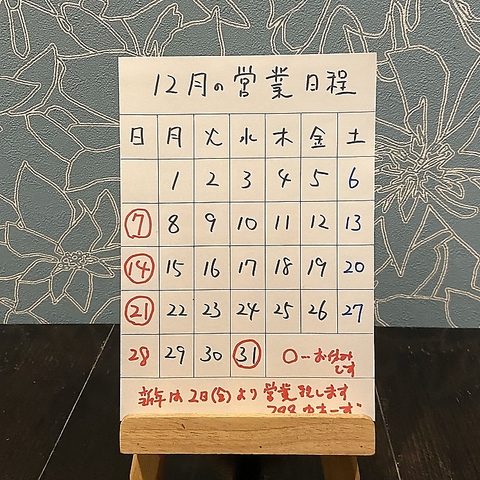 12月の営業日程
日 月 火 水 木 金 土
1 2 3 4 5 6
7 8 9 10 11 12 13
14 15 16 17 18 19 20
21 22 23 24 25 26 27
28 29 30 31 ○…お休みです
新年は2日(金)より営業致します